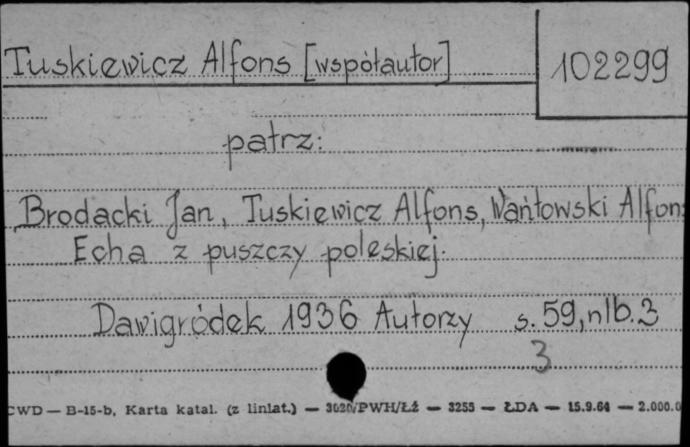 Tuskiewicz Alfons [współautor] 102299
patrz:
Brodacki Jan, Tuskiewicz Alfons, Wańtowski Alfons
Echa z puszczy poleskiej.
Dawigródek 1936 Autorzy s. 59, nlb. 3
3
CWD — B-15-b, Karta katal. (z liniat.) — 3020/PWH/Łż — 3255 — ŁDA — 15.9.64 — 2.000.0